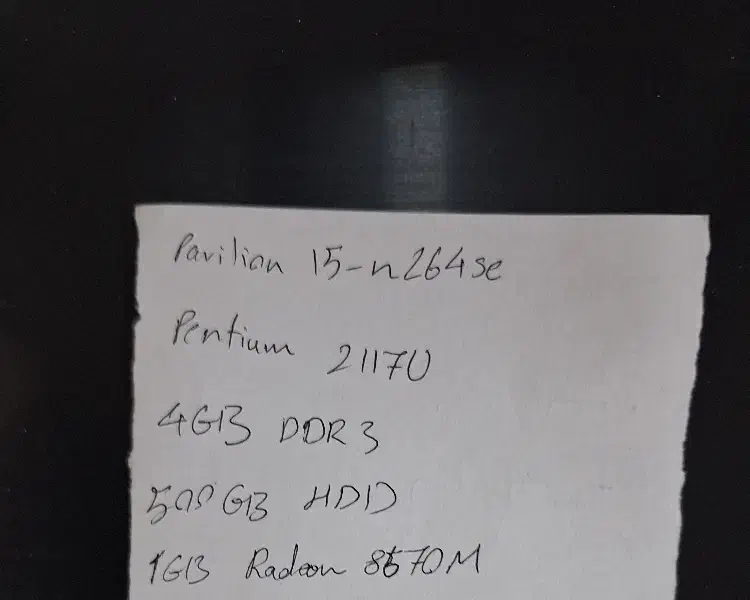 Pavilion 15-n264se
Pentium 2117U
4GB DDR3
500GB HDD
1GB Radeon 8670M